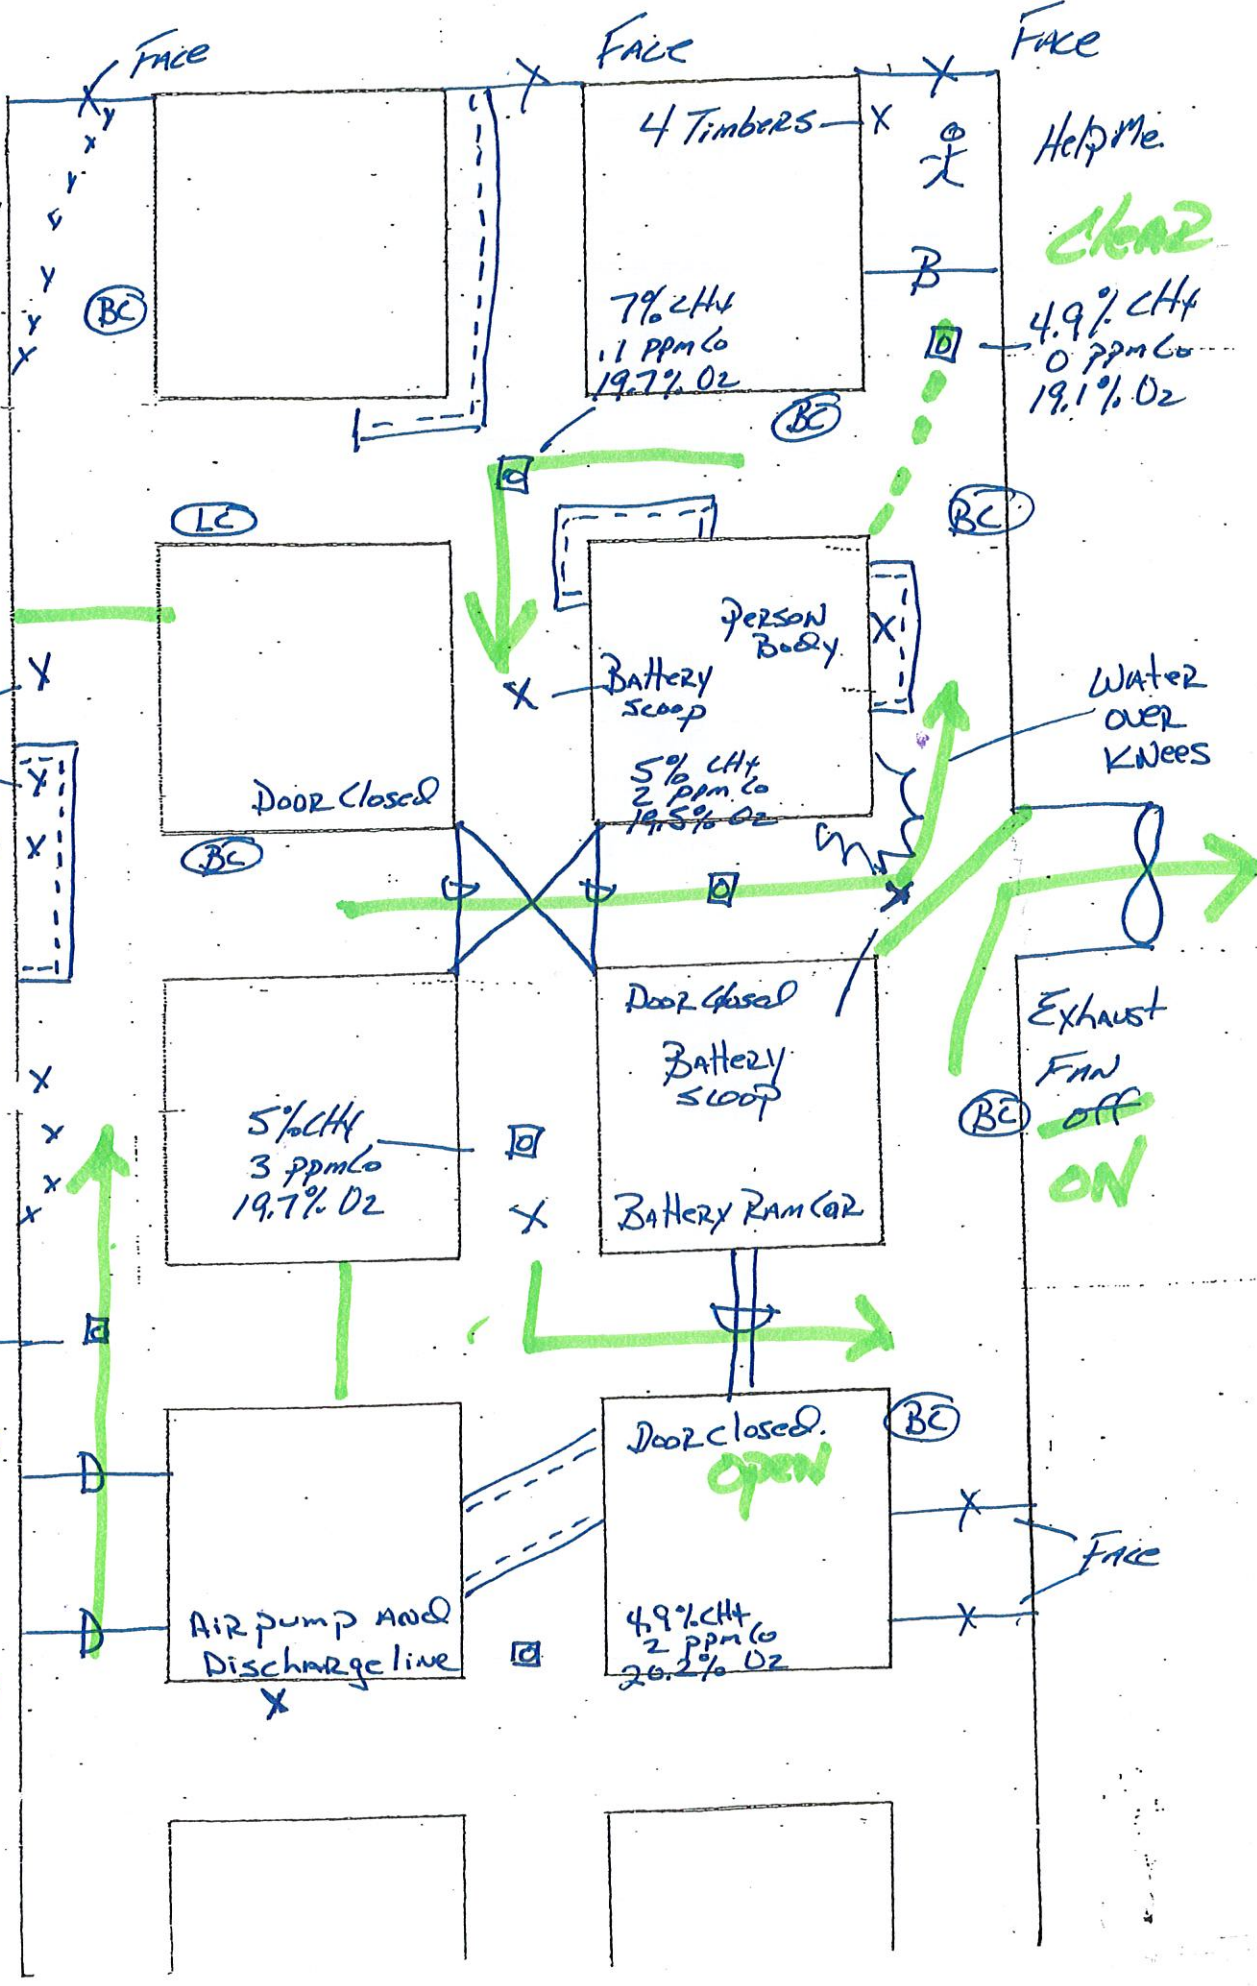 FACE
FACE
FACE
4 Timbers
X
Help Me.
Clear
B
BC
7% CH4
.1 ppm Co
19.7% O2
4.9% CH4
0 ppm Co
19.1% O2
BC
LC
BC
Person
Body
X
Battery
scoop
X
Water
over
Knees
5% CH4
2 ppm Co
19.5% O2
Door Closed
BC
Door Closed
Battery
scoop
Exhaust
Fan
off
ON
BC
5% CH4
3 ppm Co
19.7% O2
Battery Ram Car
Door closed.
open
BC
D
D
Face
Air pump And
Discharge line
4.9% CH4
2 ppm Co
20.2% O2
X